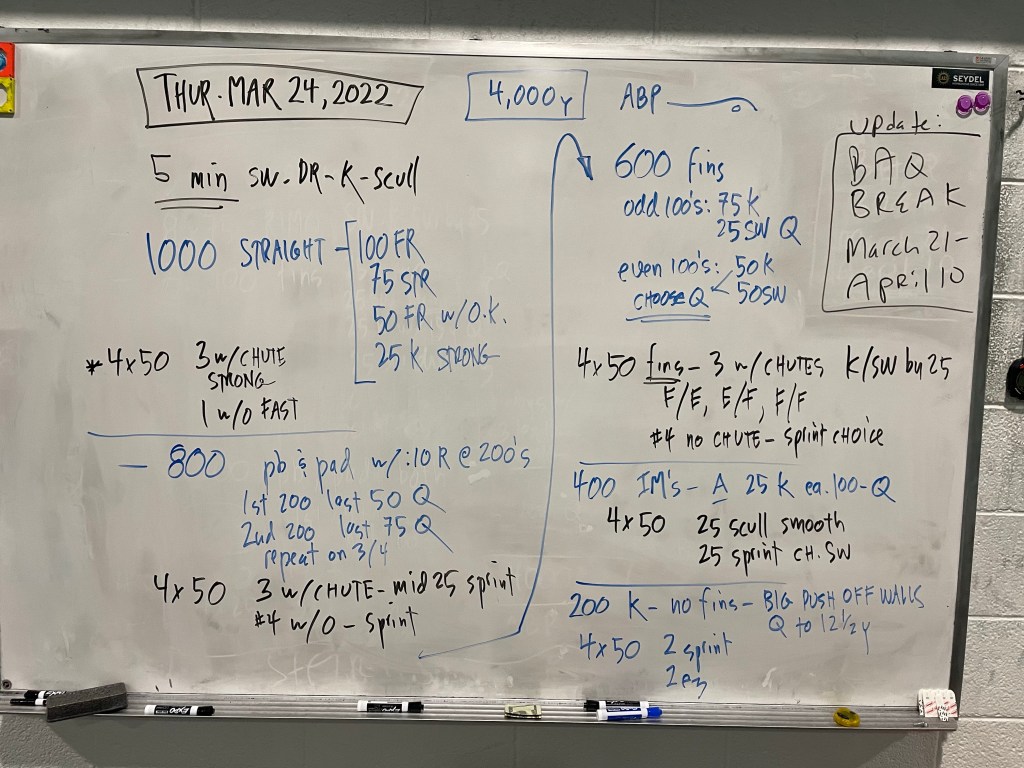 THUR. MAR 24, 2022
4,000y
ABP
5 min SW-DR-K-scull
1000 STRAIGHT - 100 FR
75 STR
50 FR w/O.K.
25 K STRONG
*4x50 3 w/CHUTE
STRONG
1 w/o FAST
- 800 pb & pad w/:10 R @ 200's
1st 200 last 50 Q
2nd 200 last 75 Q
repeat on 3/4
4x50 3 w/CHUTE - mid 25 sprint
#4 w/o - sprint
600 fins
odd 100's: 75 K
25 SW Q
even 100's: 50 K
CHOOSE Q < 50 SW
4x50 fins - 3 w/CHUTES K/SW by 25
F/E, E/F, F/F
#4 no CHUTE - sprint CHOICE
400 IM's - A 25 K ea. 100 - Q
4x50 25 scull smooth
25 sprint CH. SW
200 K - no fins - BIG PUSH OFF WALLS
Q to 12 1/2 y
4x50 2 sprint
2 ez
SEYDEL
update:
BAQ
BREAK
March 21-
April 10
EXPO